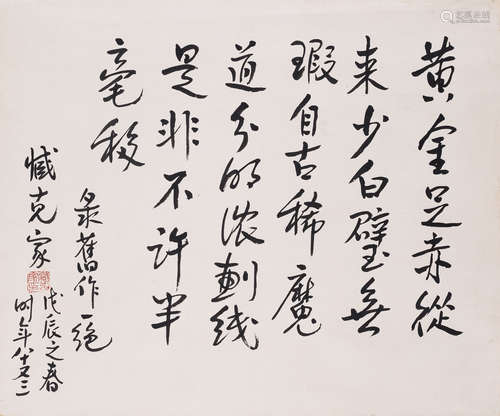 黄金足赤從
来少白璧無
瑕自古稀魔
道分明浓劃线
是非不许半
毫移
录舊作一绝
戊辰之春
时年八十又三
臧克家